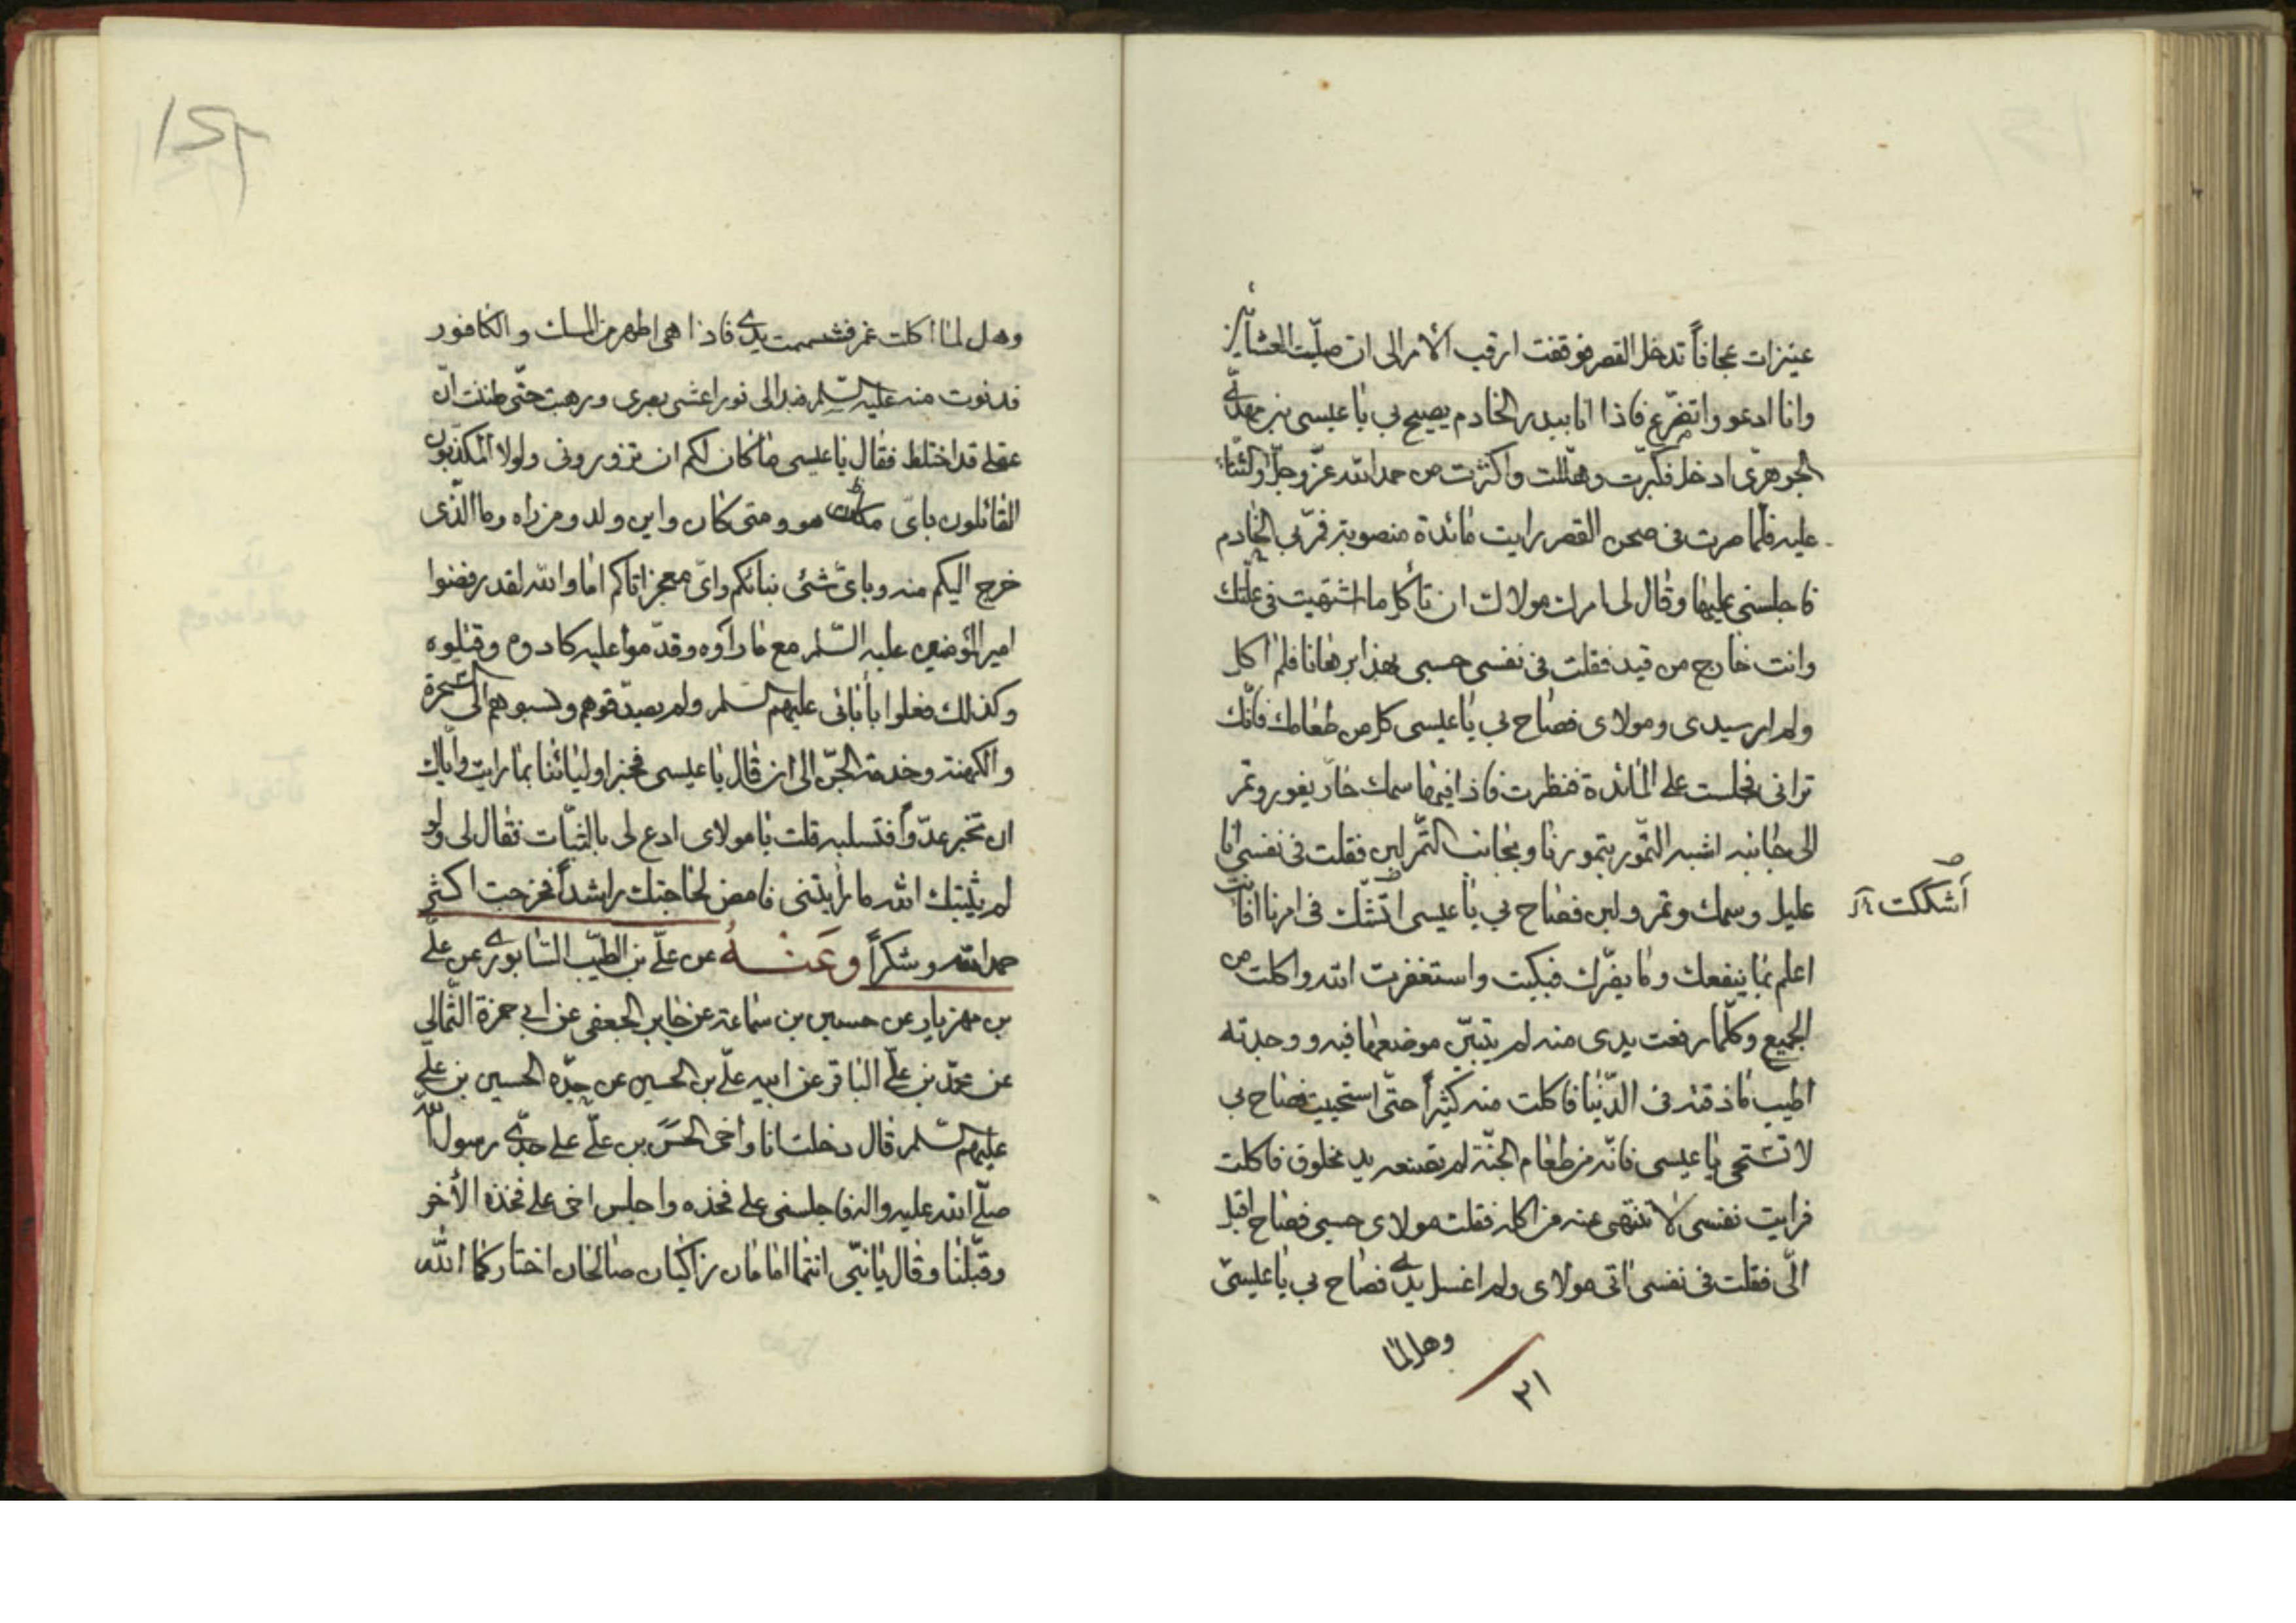 عنيزات عجافاً تدخل القصر فوقفت ارقب الأمر الى ان صلّيت العشائين
وانا ادعو واتضرّع فاذا انا ببدر الخادم يصيح بي يا عيسى بن مهدىّ
الجوهرىّ ادخل فكبّرت وهلّلت واكثرت من حمد الله عزّ وجلّ والثناء
عليه فلمّا صرت في صحن القصر رايت مائدة منصوبة فمرّ بي الخادم
فاجلسني عليها وقال لى امرك مولاك ان تأكل ما اشتهيت في علّتك
وانت خارج من فيد فقلت في نفسى حسبى بهذا برهانا فلم آكل
ولم ار سيدى ومولاى فصاح بي يا عيسى كل من طعامك فانّك
ترانى فجلست على المائدة فنظرت فاذا فيها سمك حارّ يفور وتمر
الى جانبه اشبه التمور بتمورنا وبجانب التمر لبن فقلت في نفسى انا
عليل وسمك وتمر ولبن فصاح بي يا عيسى اتشّك في امرنا افانت
أشككت
اعلم بما ينفعك وما يضّرك فبكيت واستغفرت الله واكلت من
الجميع وكلّما رفعت يدى منه لم يتبيّن موضعها فيه ووجدته
اطيب ما ذقته في الدّنيا فاكلت منه كثيراً حتّى استحييت فصاح بي
لا تستحى يا عيسى فانّه من طعام الجنّة لم تصنعه يد مخلوق فاكلت
فرايت نفسى لا تنتهى عنه من اكله فقلت مولاى حسبى فصاح اقبل
الّى فقلت في نفسى اتى مولاى ولم اغسل يدى فصاح بي يا عيسىّ
وهل لما
٢١
وهل لما اكلت غمر فشممت يدى فاذا هى اطهر من المسك والكافور
فدنوت منه عليه السّلم فبدا لى نور اعشى بصرى ورهبت حتّى ظننت انّ
عقلى قد اختلط فقال يا عيسى ما كان لكم ان تزورونى ولولا المكذّبون
القائلون باىّ مكان هو ومتى كان واين ولد ومن راه وما الّذى
خرج اليكم منه وباىّ شئ نبائكم واىّ معجز اتاكم اما والله لقد رفضوا
امير المؤمنين عليه السّلم مع ما رآوه وقدّموا عليه كادوه وقتلوه
وكذلك فعلوا بأبائى عليهم السّلم ولم يصدّقوهم ونسبوهم الى السّحرة
والكهنة وخدمة الجنّ الى ان قال يا عيسى فخبر اوليائنا بما رايت وايّاك
ان تخبر عدّواً فتسلبه قلت يا مولاى ادع لى بالثبّات فقال لى ولو
لم يثبّتك الله ما رأيتنى فامض لحاجتك راشداً فخرجت اكثر
حمد الله وشكراً وَعَنْهُ عن علّى بن الطيّب الشابورى عن علىّ
بن مهزيار عن حسين بن سماعة عن جابر الجعفى عن ابى حمزة الثّمالى
عن محمّد بن علىّ الباقر عن ابيه علىّ بن الحسين عن جدّه الحسين بن علىّ
عليهم السّلم قال دخلت انا واخى الحسن بن علىّ على جدّى رسول الله
صلّى الله عليه واله فاجلسنى على فخذه واجلس اخى على فخذه الأخر
وقبّلنا وقال يا بنّى انتما امامان زاكيان صالحان اختاركما الله